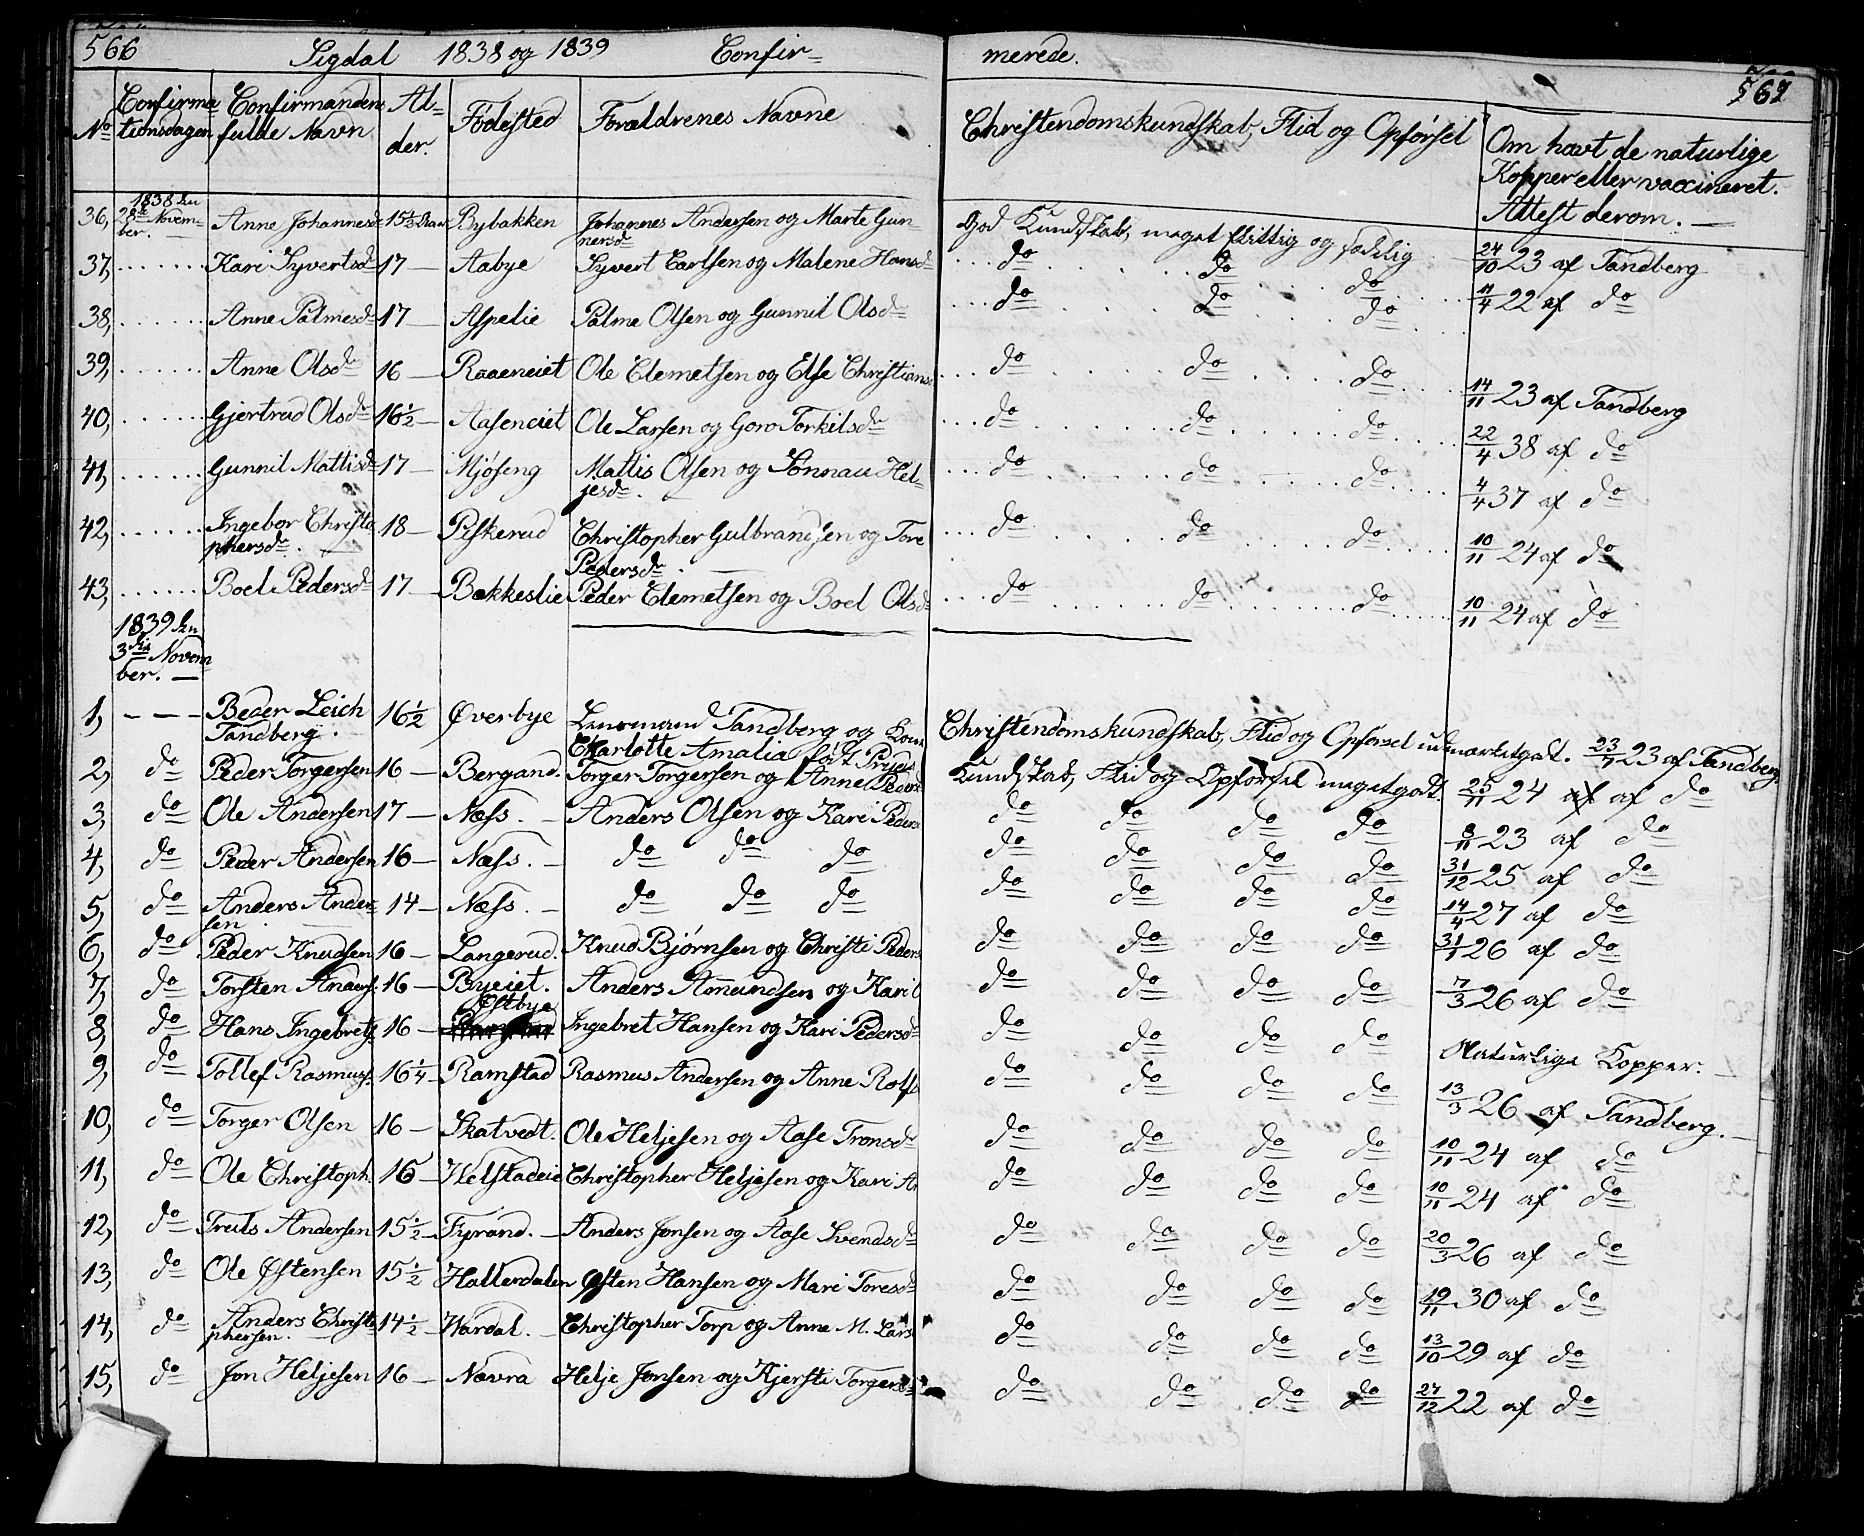 566 Sigdal 1838 og 1839 Confir= merede. 567
No Confirmationsdagen Confirmandens fulde Navn Alder. Fødested Forældrenes Navne Christendomskundskab, Flid og Opførsel Om havt de naturlige Kopper eller vaccineret. Attest derom. —
36, 1838 den 28de November. Anne Johannesdr 15 1/2 Bybakken Johannes Andersen og Marte Gunnersdr God Kundskab, meget flittig og sædelig 24/10 23 af Tandberg
37, Kari Syvertsdr 17 — Aabye Syvert Carlsen og Malene Hansdr do do do 11/4 22 af do
38, Anne Palmesdr 17 — Aspelie Palme Olsen og Gunnil Olsdr do do do
39, Anne Olsdr 16 — Raaeneiet Ole Clemetsen og Else Christians do do do 14/11 23 af Tandberg
40, Gjertrud Olsdr 16 1/2 — Aaseneiet Ole Larsen og Goro Torkilsdr do do do 22/4 38 af do
41, Gunnil Mattisdr 17 — Mjøseng Mattis Olsen og Sønnau Heljesdr. do do do 4/4 37 af do
42, Ingebor Christophersdr. 18 — Piskerud Christopher Gulbrandsen og Tore Pedersdr. — do do do 10/11 24 af do
43, Boel Pedersdr 17 — Bækkeslie Peder Clemetsen og Boel Olsdr do do do 10/11 24 af do
1839 den 3die November. —
1, — — — Beder Leich Tandberg. 16 1/2 Øverbye Lensmand Tandberg og Charlotte Amalia født Christendomskundskab, Flid og Opførsel udmærketgodt. 23/7 23 af Tandberg
2, do Peder Torgersen 16 — Bergand. Torger Torgersen og Anne Peders Kundskab, Flid og Opførsel megetgodt. 25/11 24 af af do
3, do Ole Andersen 17 — Næss. — Anders Olsen og Kari Peders do do do do 8/11 23 af do
4, do Peder Andersen 16 — Næss. — do do do do do do do 31/12 25 af do
5, do Anders Andersen. 14 — Næss. — do do do do do do do 14/4 27 af do
6, do Peder Knudsen 16 — Langerud. Knud Bjørnsen og Christi Peders do do do do 31/1 26 af do
7, do Torsten Anders. 16 — Byeiet. Anders Amundsen og Kari do do do do 7/3 26 af do
8, do Hans Ingebrets. 16 — Østbye Ingebret Hansen og Kari Pedersdr do do do do Naturlige Kopper. —
9, do Tollef Rasmuss. 16 1/4 — Ramstad Rasmus Andersen og Anne Rolfs do do do do 13/3 26 af Tandberg. —
10, do Torger Olsen 16 — Skatvedt. Ole Heljesen og Aase Tronsdr do do do do 10/11 24 af do
11, do Ole Christoph. 16 — Helstadeie Christopher Heljesen og Kari do do do do 10/11 24 af do
12, do Truls Andersen 15 1/2 — Fyrand. — Anders Jonsen og Aase Svendsdr do do do do 20/3 26 af do
13, do Ole Østensen 15 1/2 Hallerdalen Østen Hansen og Mari Toresdr do do do do 19/11 30 af do
14, do Anders Christophersen. 14 1/2 — Wardal. — Christopher Torp og Anne M. Lars do do do do 13/10 29 af do
15, do Jon Heljesen 16 — Nævra Helje Jonsen og Kjersti Torgers do do do do 27/12 22 af do